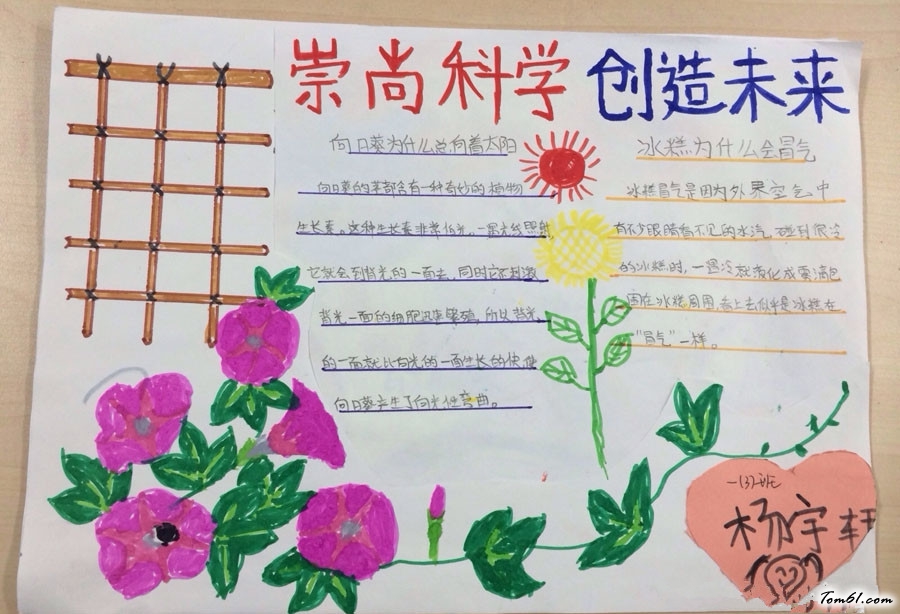 崇尚科学 创造未来
向日葵为什么总向着太阳
向日葵的茎部含有一种奇妙的植物
生长素。这种生长素非常怕光。一遇光线照射
它就会到背光的一面去,同时它还刺激
背光一面的细胞迅速繁殖,所以背光
的一面就比向光的一面生长的快使
向日葵产生了向光性弯曲。
冰糕为什么会冒气
冰糕冒气是因为外界空气中
有不少眼睛看不见的水汽,碰到很冷
的冰糕时,一遇冷就液化成雾滴包
围在冰糕周围,看上去似乎是冰糕在
"冒气"一样。
一(3)班
杨宇轩
Tom61.com